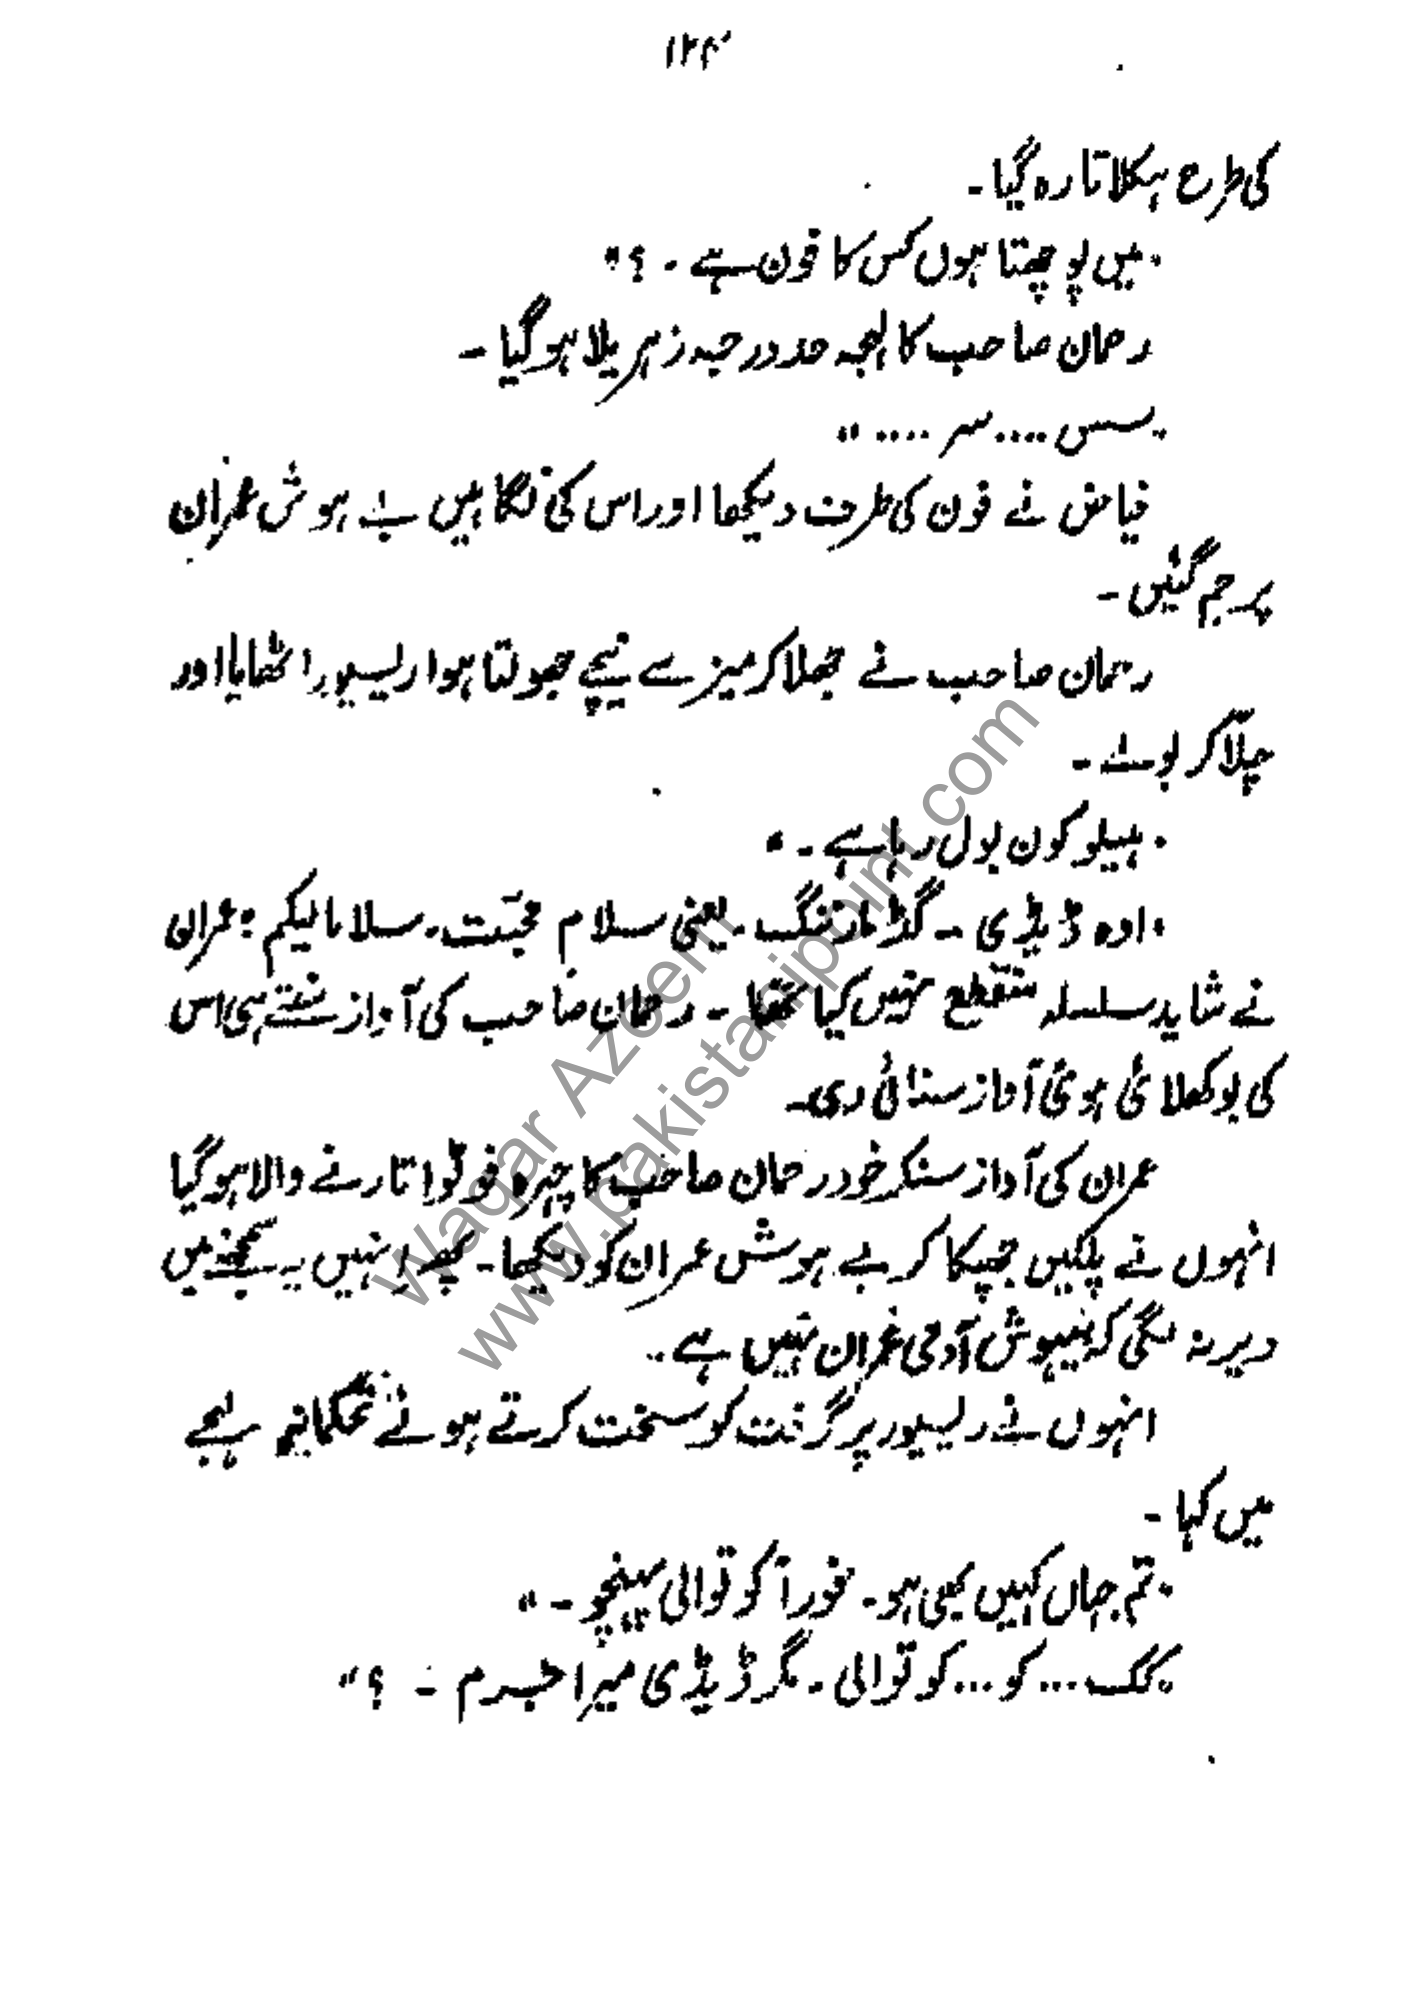 ۱۲۴
کی طرح ہکلاتا رہ گیا۔
"میں پوچھتا ہوں کس کا فون ہے۔ ؟"
رحمان صاحب کا لہجہ حد درجہ زہریلا ہو گیا۔
"سس .... سر ...."
فیاض نے فون کی طرف دیکھا اور اس کی نگاہیں بے ہوش عمران
پر جم گئیں۔
رحمان صاحب نے جھلا کر میز سے نیچے جھولتا ہوا ریسیور اٹھایا اور
چلّا کر بولے۔
"ہیلو کون بول رہا ہے۔"
"اوہ ڈیڈی۔ گڈ مارننگ۔ یعنی سلام محبّت۔ سلاما لیکم" عمران
نے شاید سلسلہ منقطع نہیں کیا تھا۔ رحمان صاحب کی آواز سنتے ہی اس
کی بوکھلائی ہوئی آواز سنائی دی۔
عمران کی آواز سنکر خود رحمان صاحب کا چہرہ فوٹو اتارنے والا ہو گیا
انہوں نے پلکیں جھپکا کر بے ہوش عمران کو دیکھا۔ پھر انہیں یہ سمجھنے میں
دیر نہ لگی کہ بیہوش آدمی عمران نہیں ہے۔
انہوں نے ریسیور پر گرفت کو سخت کرتے ہوئے تحکمانہ لہجے
میں کہا۔
"تم جہاں کہیں بھی ہو۔ فوراً کوتوالی پہنچو۔"
"کک ... کو ... کوتوالی۔ مگر ڈیڈی میرا جرم ۔ ؟"
Waqar Azeem
www.pakistanipoint.com